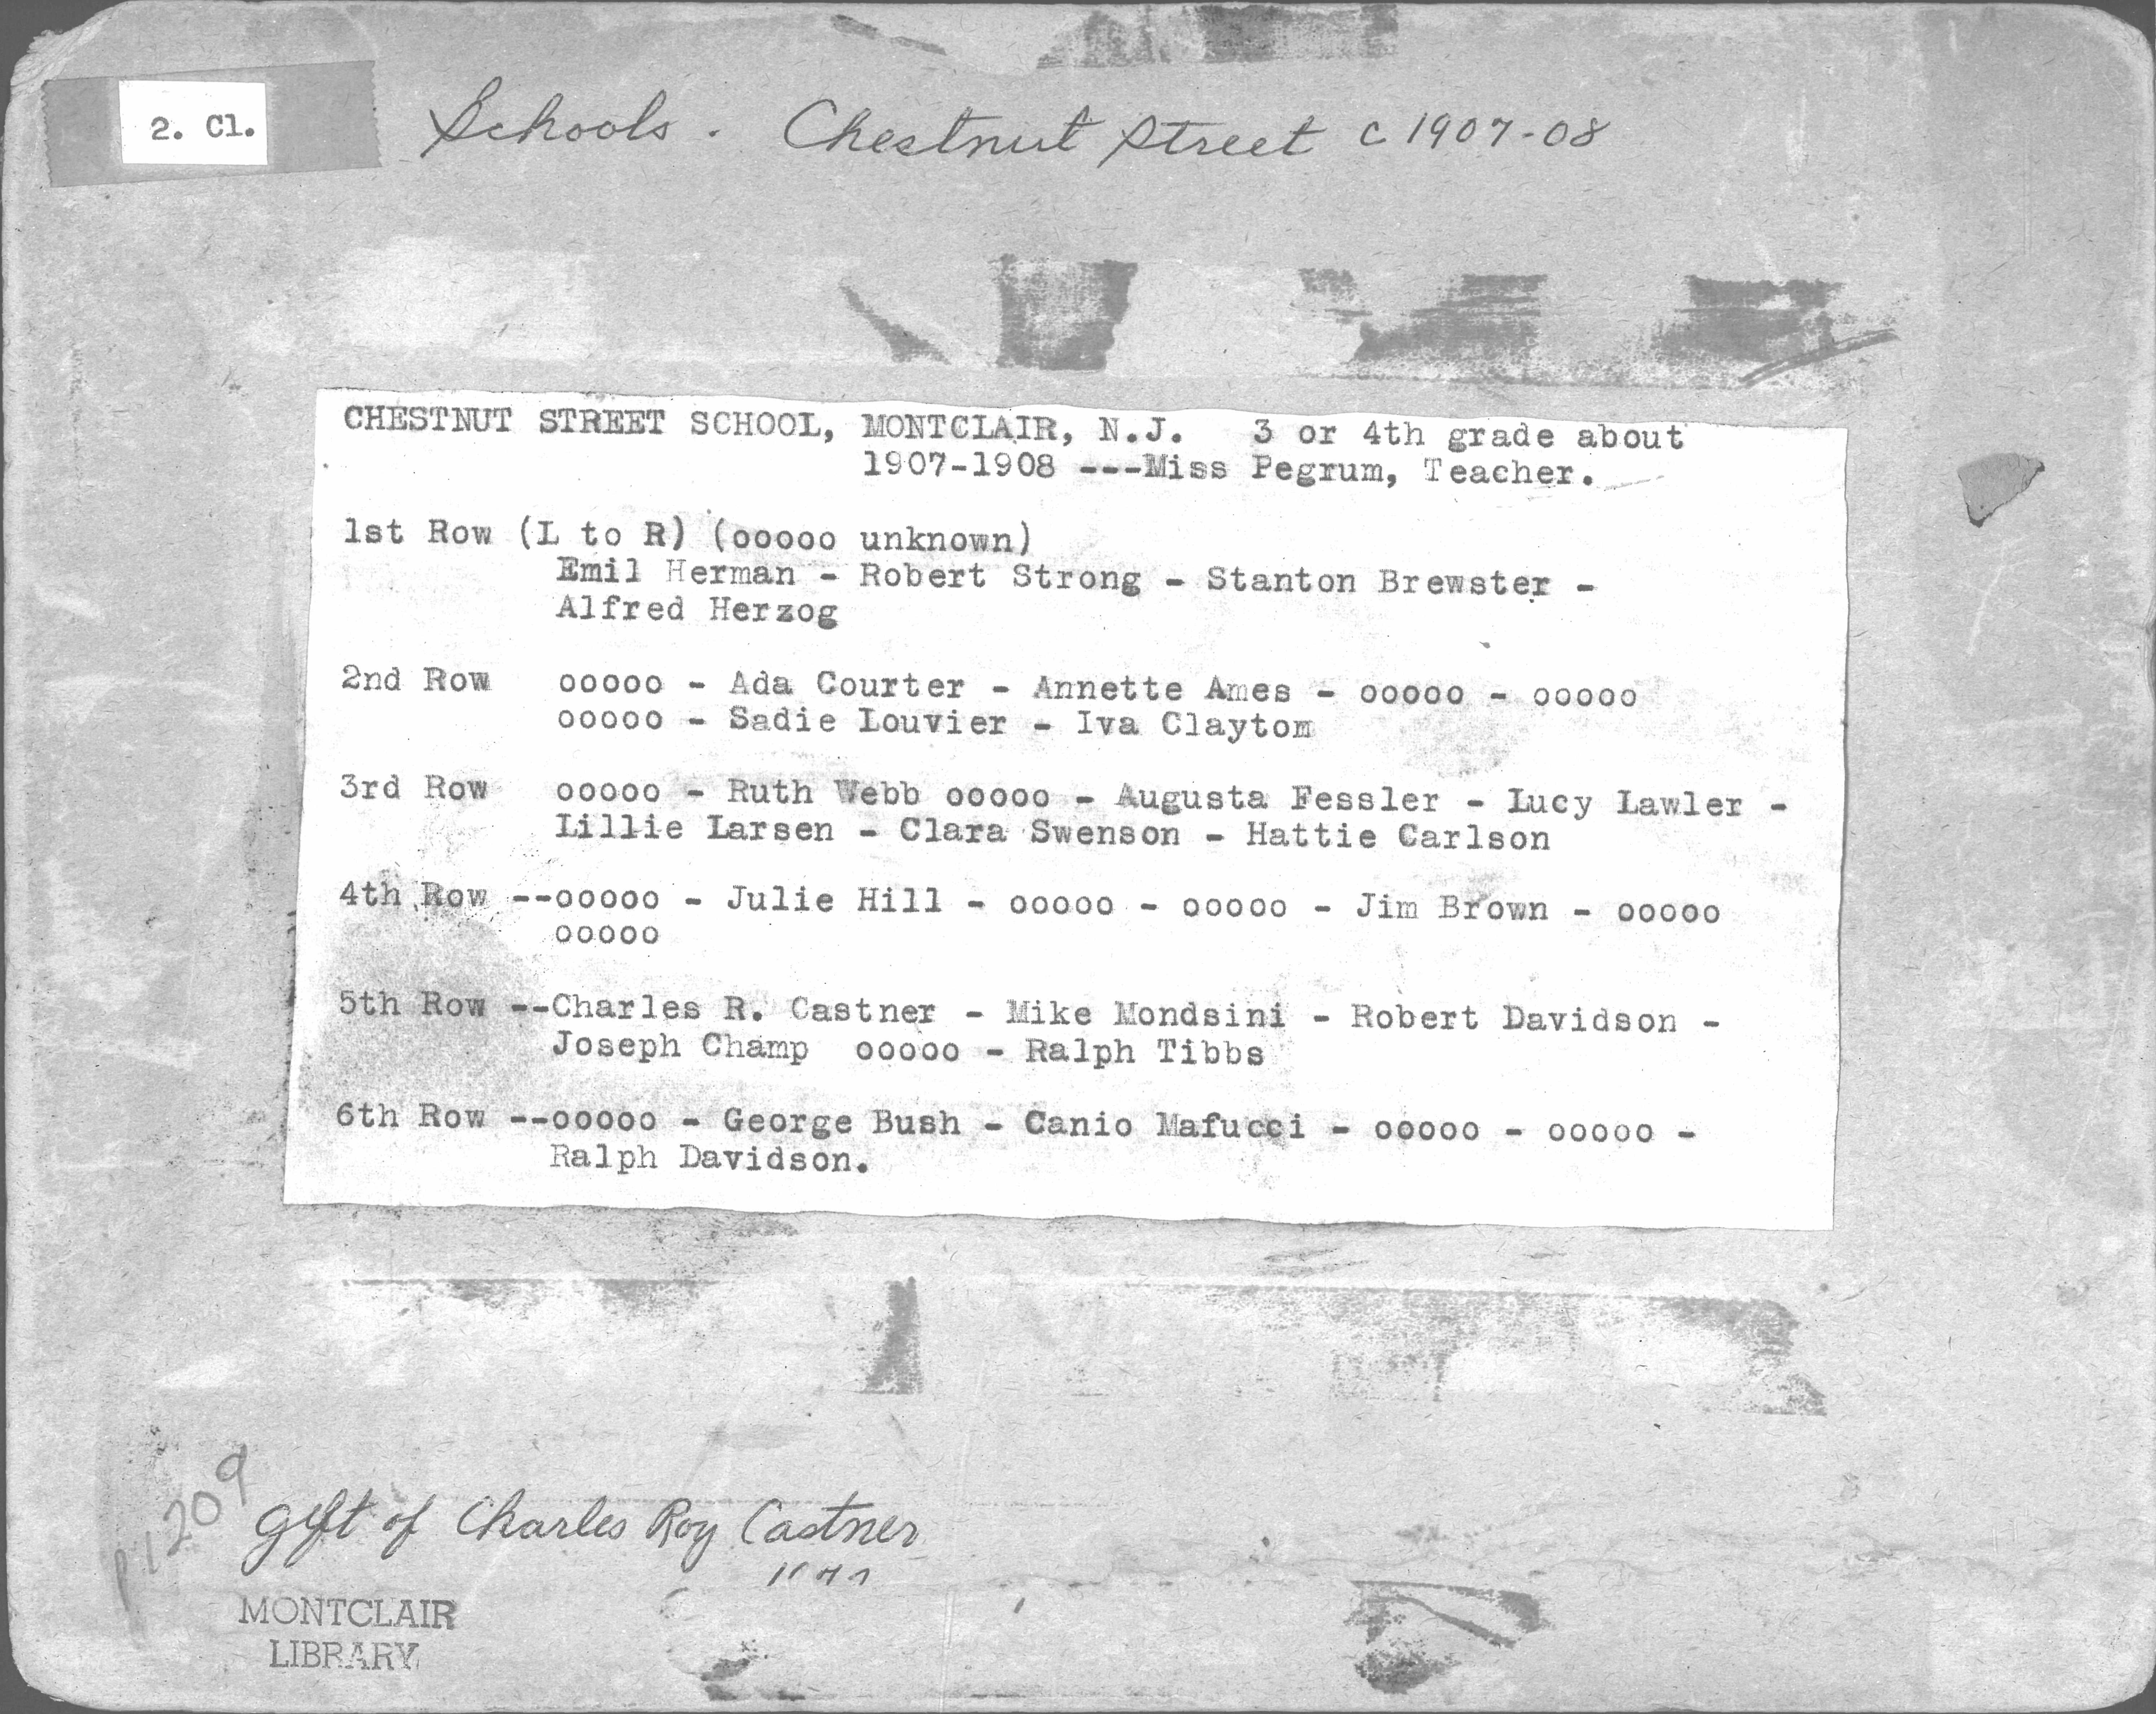 2. Cl.
Schools. Chestnut Street c 1907-08
CHESTNUT STREET SCHOOL, MONTCLAIR, N.J. 3 or 4th grade about
1907-1908 ---Miss Pegrum, Teacher.
1st Row (L to R) (ooooo unknown)
Emil Herman - Robert Strong - Stanton Brewster -
Alfred Herzog
2nd Row ooooo - Ada Courter - Annette Ames - ooooo - ooooo
ooooo - Sadie Louvier - Iva Claytom
3rd Row ooooo - Ruth Webb ooooo - Augusta Fessler - Lucy Lawler -
Lillie Larsen - Clara Swenson - Hattie Carlson
4th Row --ooooo - Julie Hill - ooooo - ooooo - Jim Brown - ooooo
ooooo
5th Row --Charles R. Castner - Mike Mondsini - Robert Davidson -
Joseph Champ ooooo - Ralph Tibbs
6th Row --ooooo - George Bush - Canio Mafucci - ooooo - ooooo -
Ralph Davidson.
gift of Charles Roy Castner
MONTCLAIR
LIBRARY